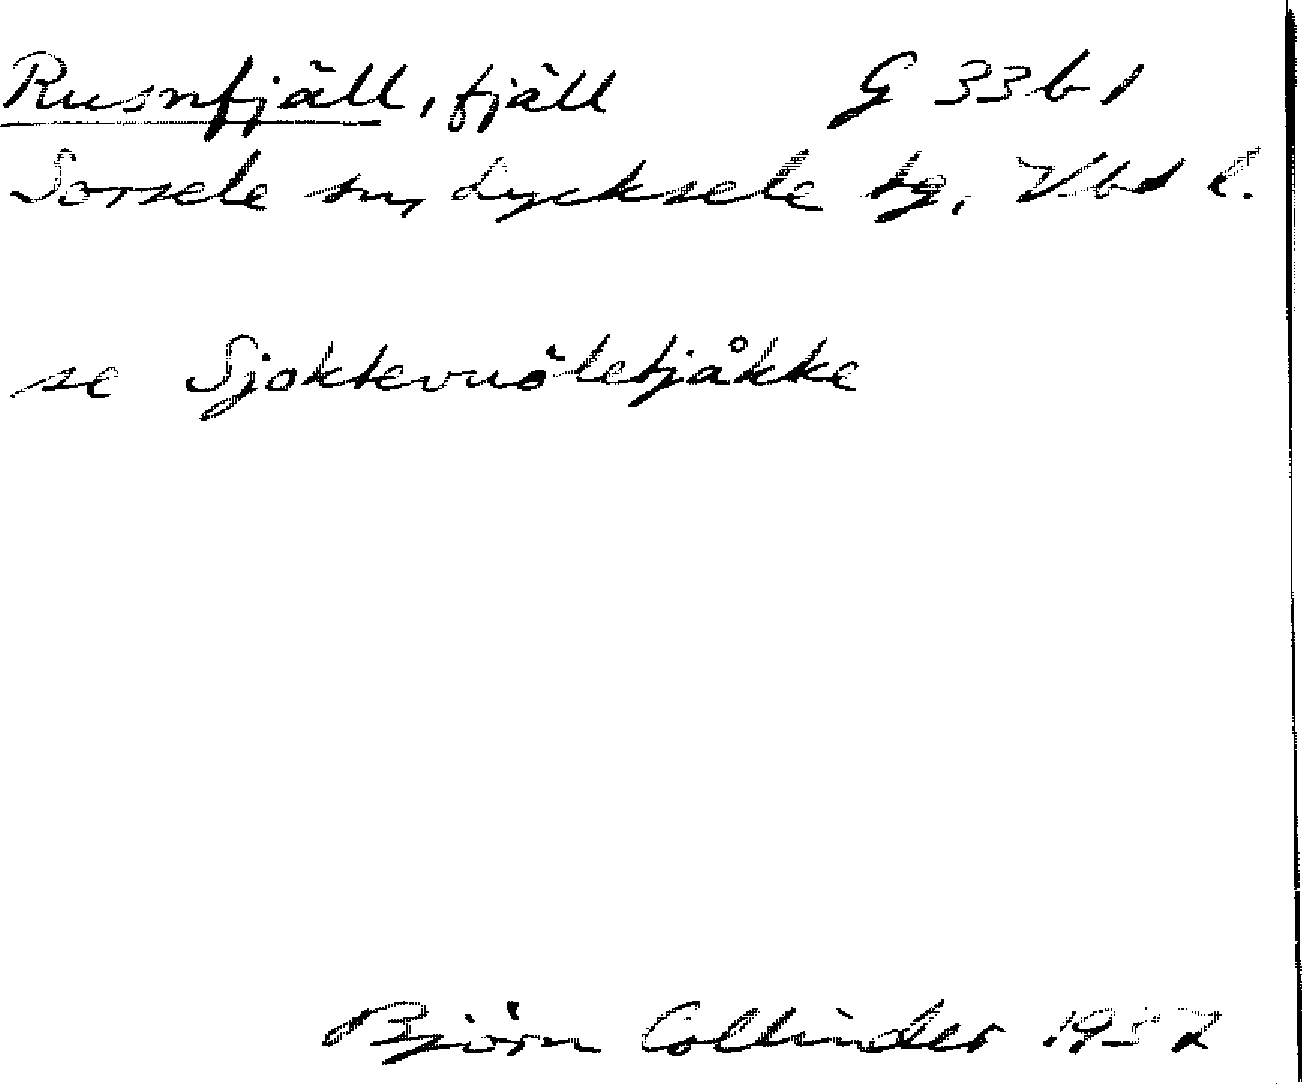 Rusnfjäll, fjäll G 33b1
Sorsele sn, Lycksele tg, Vbd l.
se Sjoktevuöletjåkke
Björn Collinder 1957